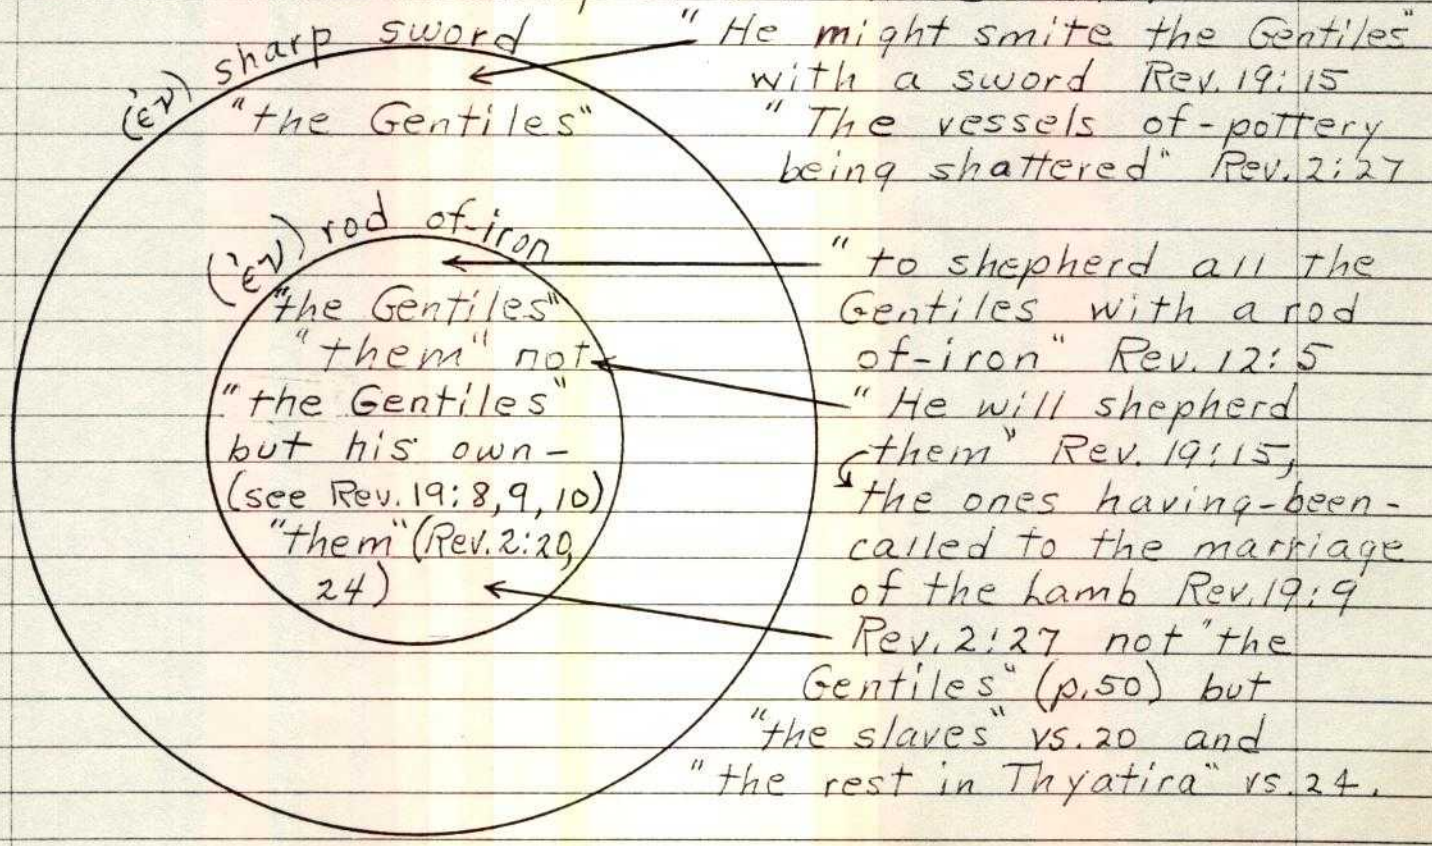 (ἐν) sharp sword
"the Gentiles"
(ἐν) rod of-iron
"the Gentiles"
"them" not
"the Gentiles"
but his own-
(see Rev. 19:8,9,10)
"them" (Rev. 2:20,
24)
"He might smite the Gentiles"
with a sword Rev. 19:15
"The vessels of-pottery
being shattered" Rev. 2:27
"to shepherd all the
Gentiles with a rod
of-iron" Rev. 12:5
"He will shepherd
them" Rev. 19:15,
the ones having-been-
called to the marriage
of the Lamb Rev. 19:9
Rev. 2:27 not "the
Gentiles" (p.50) but
"the slaves" vs. 20 and
"the rest in Thyatira" vs. 24.